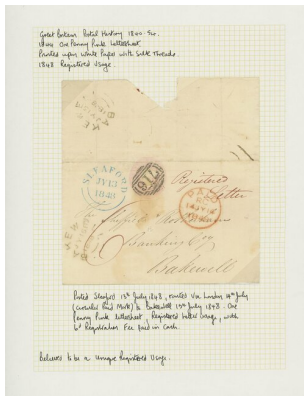 Great Britain Postal History 1800 Etc.
1844 One Penny Pink Lettersheet
Printed upon White Paper with Silk Threads.
1848 Registered Usage
SLEAFORD
JY 13
1848
716
Registered
Letter
PAID
Banking Coy
Bakewell
Posted Sleaford 13th July 1848, routed via London 14th July
(circular Paid Mark) to Bakewell 15th July 1848. One
Penny Pink lettersheet, Registered Letter Usage, with
6d Registration Fee paid in Cash.
Believed to be a Unique Registered Usage.